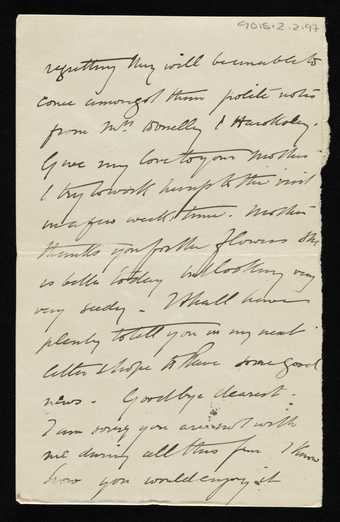 9015.2.2.97
regretting they will be unable to
come amongst them polite notes
from Mrs Donelly &
Give my love to your Mother
I try to work her up to the visit
in a few weeks time. Mother
thanks you for the flowers she
is better today but looking very
very seedy. I shall have
plenty to tell you in my next
letter & hope to have some good
news. Goodbye dearest.
I am sorry you are not with
me during all this fun I know
how you would enjoy it